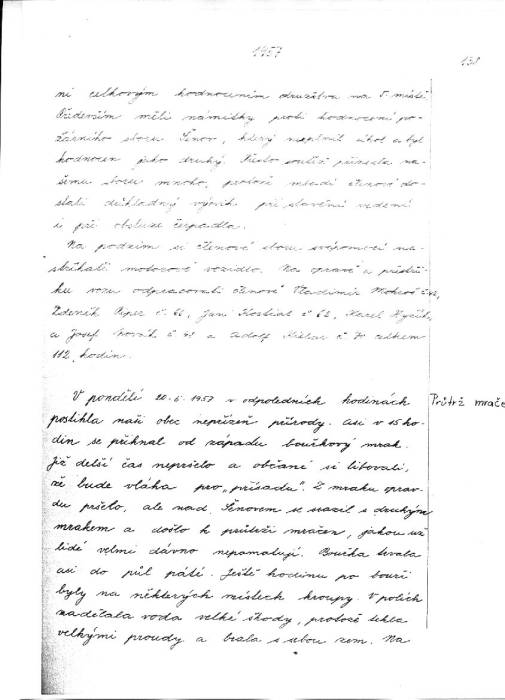 1957
138
ní celkovým hodnocením družstva na 5. místě.
Především měli námitky proti hodnocení po-
žárního sboru Šenov, který nesplnil úkol a byl
hodnocen jako druhý. Tato soutěž přinesla na-
šemu sboru mnoho, protože mladí členové do-
stali důkladný výcvik při stavění vedení
i při obsluze čerpadla.
Na podzim si členové sboru svépomocí na-
stříkali motorové vozidlo. Na opravě a přístři-
ku vozu odpracovali členové Vladimír
Zdeněk Piper č. 22, Jan Kostial č. 62, Karel
a Josef Novák č. 48 a Adolf č. 70 celkem
112 hodin.
V pondělí 20. 5. 1957 v odpoledních hodinách
Průtrž mrače
postihla naši obec nepřízeň přírody. Asi v 15 ho-
din se přihnal od západu bouřkový mrak.
Již delší čas nepršelo a občané si libovali,
že bude vláha pro „přísadu". Z mraku oprav-
du pršelo, ale nad Šenovem se srazil s druhým
mrakem a došlo k průtrži mračen, jakou už
lidé velmi dávno nepamatují. Bouřka trvala
asi do půl páté. Ještě hodinu po bouři
byly na některých místech kroupy. V polích
nadělala voda velké škody, protože tekla
velkými proudy a brala s sebou zem. Na